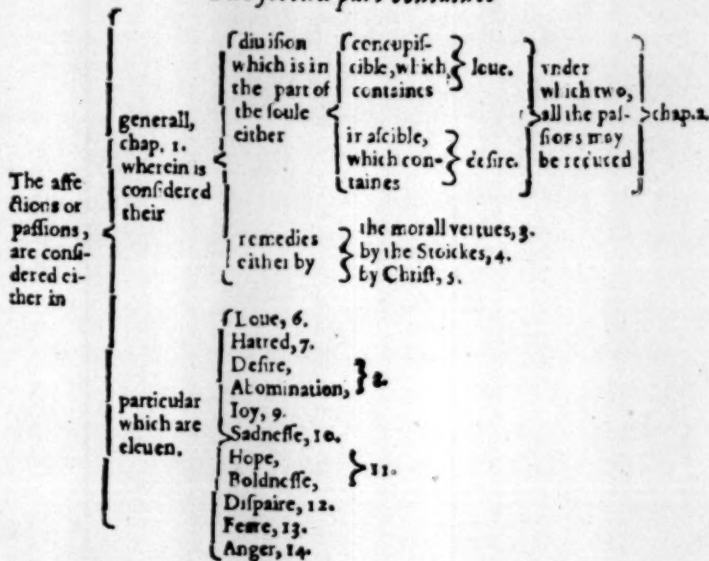 The affe
ctions or
passions,
are consi-
dered ei-
ther in
generall,
chap. 1.
wherein is
considered
their
diuision
which is in
the part of
the soule
either
concupis-
cible, which
containes
loue.
irascible,
which con-
taines
desire.
vnder
which two,
all the pas-
sions may
be reduced
chap. 2.
remedies
either by
the morall vertues, 3.
by the Stoickes, 4.
by Christ, 5.
particular
which are
eleuen.
Loue, 6.
Hatred, 7.
Desire,
Abomination,
8.
Ioy, 9.
Sadnesse, 10.
Hope,
Boldnesse,
11.
Dispaire, 12.
Feare, 13.
Anger, 14.